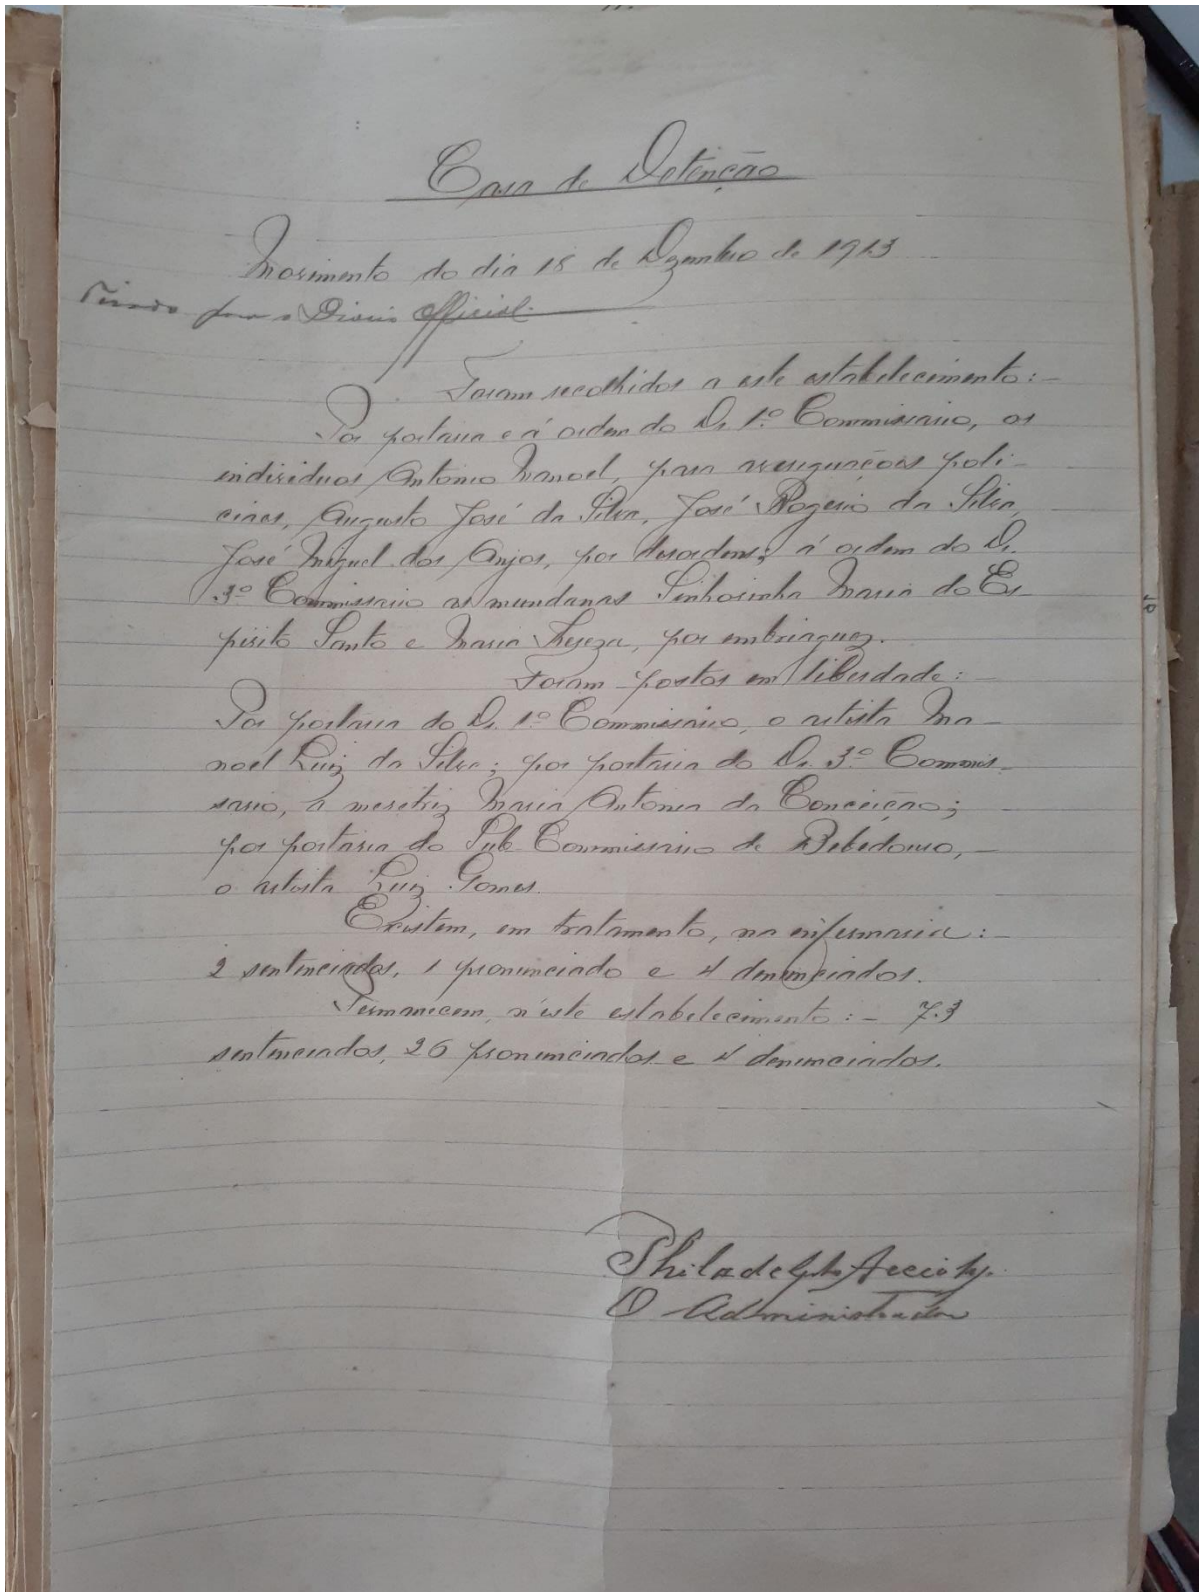 Casa de Detenção
Movimento do dia 18 de Dezembro de 1913
para o Diario Official.
Foram recolhidos a este estabelecimento:-
Por portaria e á ordem do Dr. 1º Commissario, os
individuos Antonio Manoel, para averiguações poli-
ciaes, Augusto José da Silva, José Rogerio da Silva,
José Miguel dos Anjos, por desordens; á ordem do Dr.
3º Commissario as mundanas Sinhosinha Maria do Es-
pirito Santo e Maria Thereza, por embriaguez.
Foram postos em liberdade:-
Por portaria do Dr. 1º Commissario, o artista Ma-
noel Luiz da Silva; por portaria do Dr. 3º Commis-
sario, a meretriz Maria Antonia da Conceição;
por portaria do Sub Commissario de Bebedouro,-
o artista Luiz Gomes.
Existem, em tratamento, na enfermaria:-
2 sentenciados, 1 pronunciado e 4 denunciados.
Permanecem, n'este estabelecimento:- 73
sentenciados, 26 pronunciados e 4 denunciados.
Philadelpho Accioly.
O Administrador